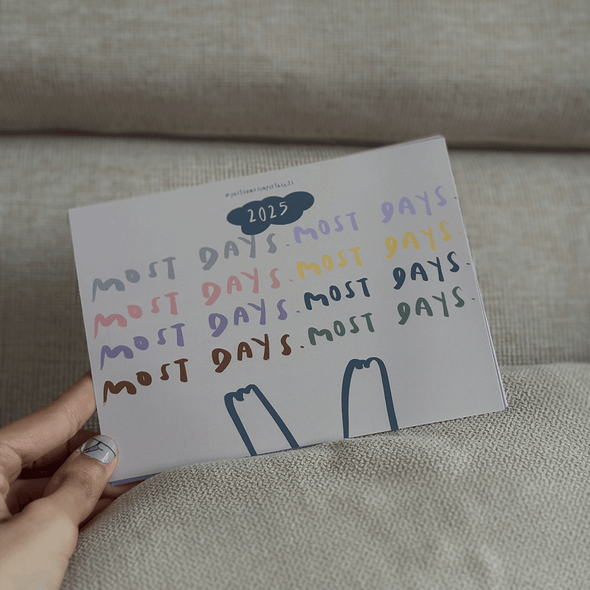 2025
MOST DAYS. MOST DAYS.
MOST DAYS. MOST DAYS.
MOST DAYS. MOST DAYS.
MOST DAYS. MOST DAYS.